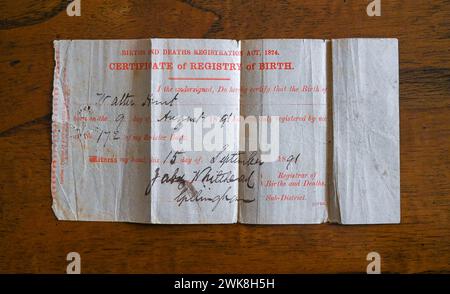 BIRTHS AND DEATHS REGISTRATION ACT, 1874.
CERTIFICATE OF REGISTRY OF BIRTH.
I the undersigned, Do hereby certify that the Birth of
Walter Hunt
born on the 9 day of August 1891 registered by me
at 172 of my Register Book.
Witness my hand, this 15 day of September 1891
Whitehead Registrar of
Births and Deaths,
Gillingham Sub-District.
alamy
Image ID: 2WK8H5H
www.alamy.com